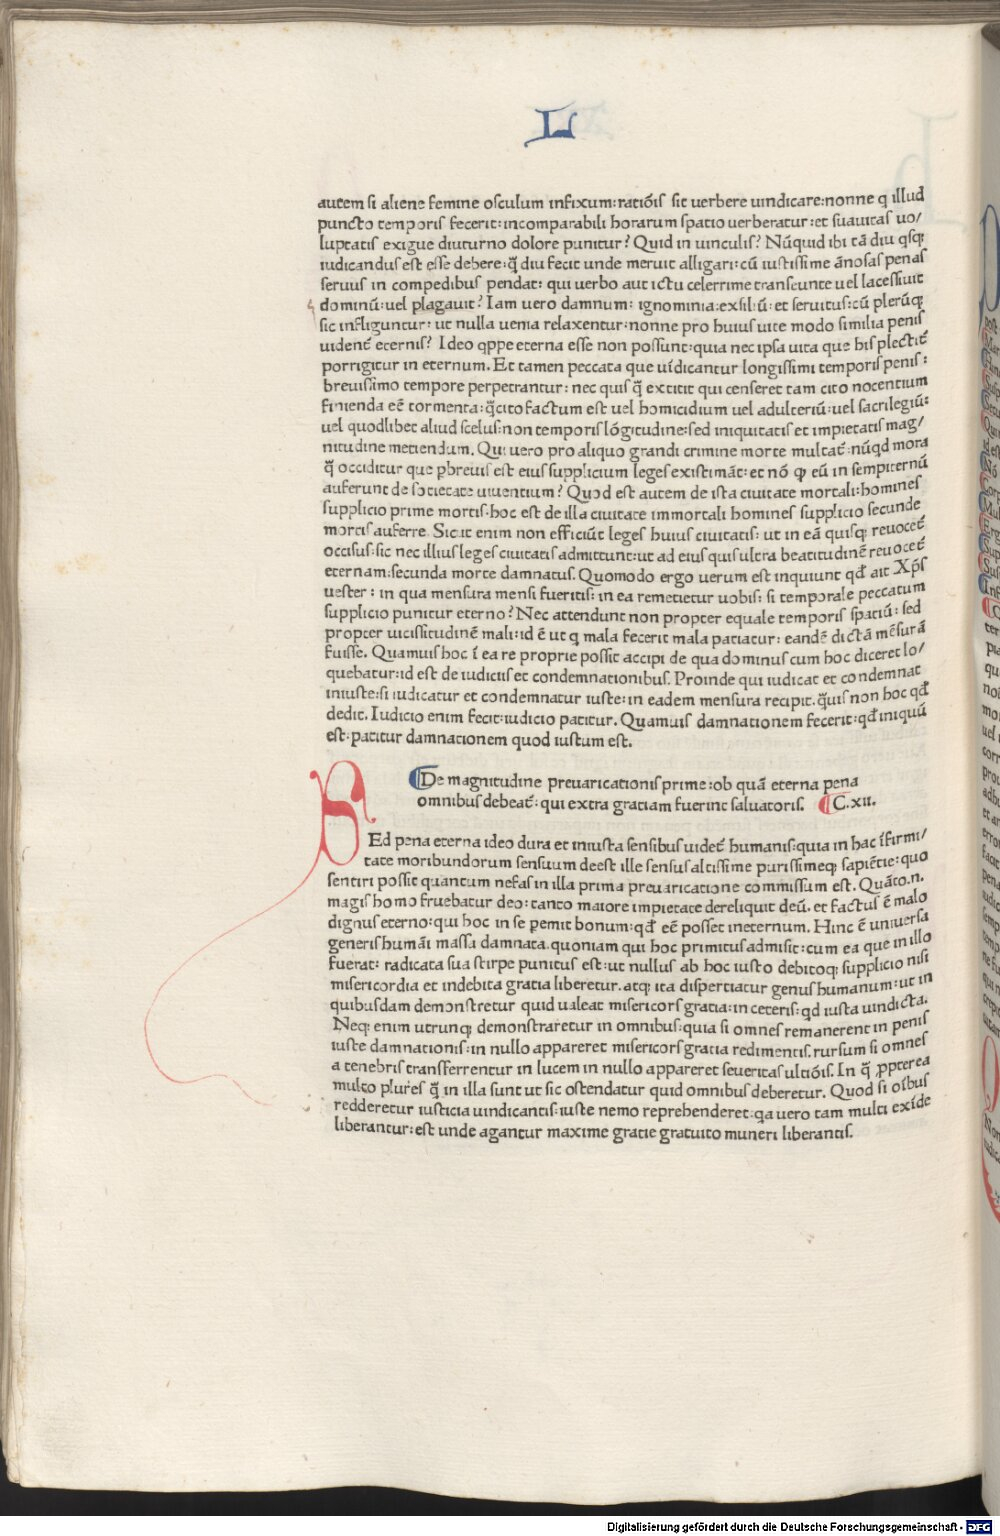 L
autem si aliene femine osculum infixum: ratiōis sit verbere uindicare: nonne q illud
puncto temporis fecerit: incomparabili horarum spatio uerberatur: et suauitas uo/
luptatis exigue diuturno dolore punitur? Quid in uinculis? Nūquid ibi tā diu qsq;
iudicandus est esse debere: q̄ diu fecit unde meruit alligari: cū iustissime ānosas penas
seruus in compedibus pendat: qui uerbo aut ictu celerrime transeunte uel lacessiuit
dominū: uel plagauit? Iam uero damnum: ignominia: exsiliū: et seruitus: cū plerūq;
sic infliguntur: ut nulla uenia relaxentur: nonne pro huius uite modo similia penis
uident̄ eternis? Ideo qppe eterna esse non possunt: quia nec ipsa uita que his plectit̄
porrigitur in eternum. Et tamen peccata que uīdicantur longissimi temporis penis:
breuissimo tempore perpetrantur: nec quis q̄ extitit qui censeret tam cito nocentium
finienda eē tormenta: q̄cito factum est uel homicidium uel adulteriū: uel sacrilegiū:
uel quodlibet aliud scelus: non temporis lōgitudine: sed iniquitatis et impietatis mag/
nitudine metiendum. Qui uero pro aliquo grandi crimine morte multat̄: nūqd mora
q̄ occiditur que pbreuis est eius supplicium leges existimāt: et nō qp eū in sempiternū
auferunt de societate uiuentium? Quod est autem de ista ciuitate mortali: homines
supplicio prime mortis: hoc est de illa ciuitate immortali homines supplicio secunde
mortis auferre. Sicut enim non efficiūt leges huius ciuitatis: ut in eā quisq; reuocet̄
occisus: sic nec illius leges ciuitatis admittunt: ut ad eius quis ultra beatitudinē reuocet̄
eternam: secunda morte damnatus. Quomodo ergo uerum est inquiunt qđ ait Xp̄s
uester: in qua mensura mensi fueritis: in ea remetietur uobis: si temporale peccatum
supplicio punitur eterno? Nec attendunt non propter equale temporis spatiū: sed
propter uicissitudinē mali: id ē ut q mala fecerit mala patiatur: eandē dictā mēsurā
fuisse. Quamuis hoc ī ea re proprie possit accipi de qua dominus cum hoc diceret lo/
quebatur: id est de iudiciis et condemnationibus. Proinde qui iudicat et condemnat
iniuste: si iudicatur et condemnatur iuste: in eadem mensura recipit. q̄uis non hoc qđ
dedit. Iudicio enim fecit: iudicio patitur. Quamuis damnationem fecerit: qđ iniquū
est: patitur damnationem quod iustum est.
De magnitudine preuaricationis prime: ob quā eterna pena
omnibus debeat̄: qui extra gratiam fuerint saluatoris. C. xii.
SEd pena eterna ideo dura et iniusta sensibus uidet̄ humanis: quia in hac īfirmi/
tate moribundorum sensuum deest ille sensus altissime purissimeq; sapiētie: quo
sentiri possit quantum nefas in illa prima preuaricatione commissum est. Quāto .n.
magis homo fruebatur deo: tanto maiore impietate dereliquit deū. et factus ē malo
dignus eterno: qui hoc in se pemit bonum: qđ eē posset ineternum. Hinc ē uniuersa
generis humāi massa damnata. quoniam qui hoc primitus admisit: cum ea que in illo
fuerat: radicata sua stirpe punitus est: ut nullus ab hoc iusto debitoq; supplicio nisi
misericordia et indebita gratia liberetur. atq; ita dispertiatur genus humanum: ut in
quibusdam demonstretur quid ualeat misericors gratia: in ceteris: qd iusta uindicta.
Neq; enim utrunq; demonstraretur in omnibus: quia si omnes remanerent in penis
iuste damnationis: in nullo appareret misericors gratia redimentis. rursum si omnes
a tenebris transferrentur in lucem in nullo appareret seueritas ultiōis. In q̄ ppterea
multo plures q̄ in illa sunt ut sic ostendatur quid omnibus deberetur. Quod si oībus
redderetur iusticia uindicantis: iuste nemo reprehenderet: qa uero tam multi exīde
liberantur: est unde agantur maxime gratie gratuito muneri liberantis.
Digitalisierung gefördert durch die Deutsche Forschungsgemeinschaft - DFG